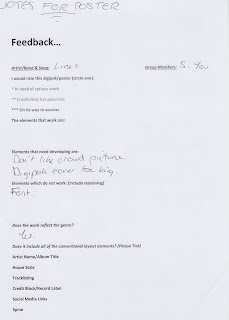 NOTES FOR POSTER
Feedback...
Artist/Band & Song: Lines Group Members: S. You
I would rate this digipak/poster (circle one):
* In need of serious work
** It definitely has potential
*** On its way to success
The elements that work are:
Elements that need developing are:
Don't like crowd picture
Digipak cover too big
Elements which do not work: (include reasoning)
Font:
Does the work reflect the genre?
Yes
Does it include all of the conventional layout elements? (Please Tick)
Artist Name/Album Title
House Style
Tracklisting
Credit Block/Record Label
Social Media Links
Spine